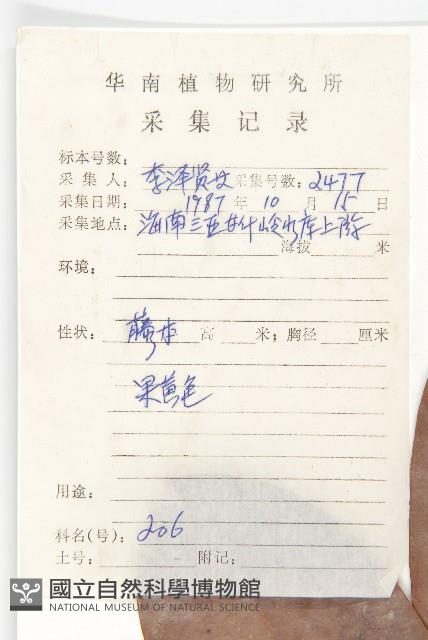 华南植物研究所
采集记录
标本号数：
采集人：李泽贤 采集号数：2477
采集日期：1987年10月15日
采集地点：海南三亚甘什岭水库上游
海拔 米
环境：
性状：藤本 高 米；胸径 厘米
果黄色
用途：
科名(号)：206
土号： 附记：
國立自然科學博物館
NATIONAL MUSEUM OF NATURAL SCIENCE